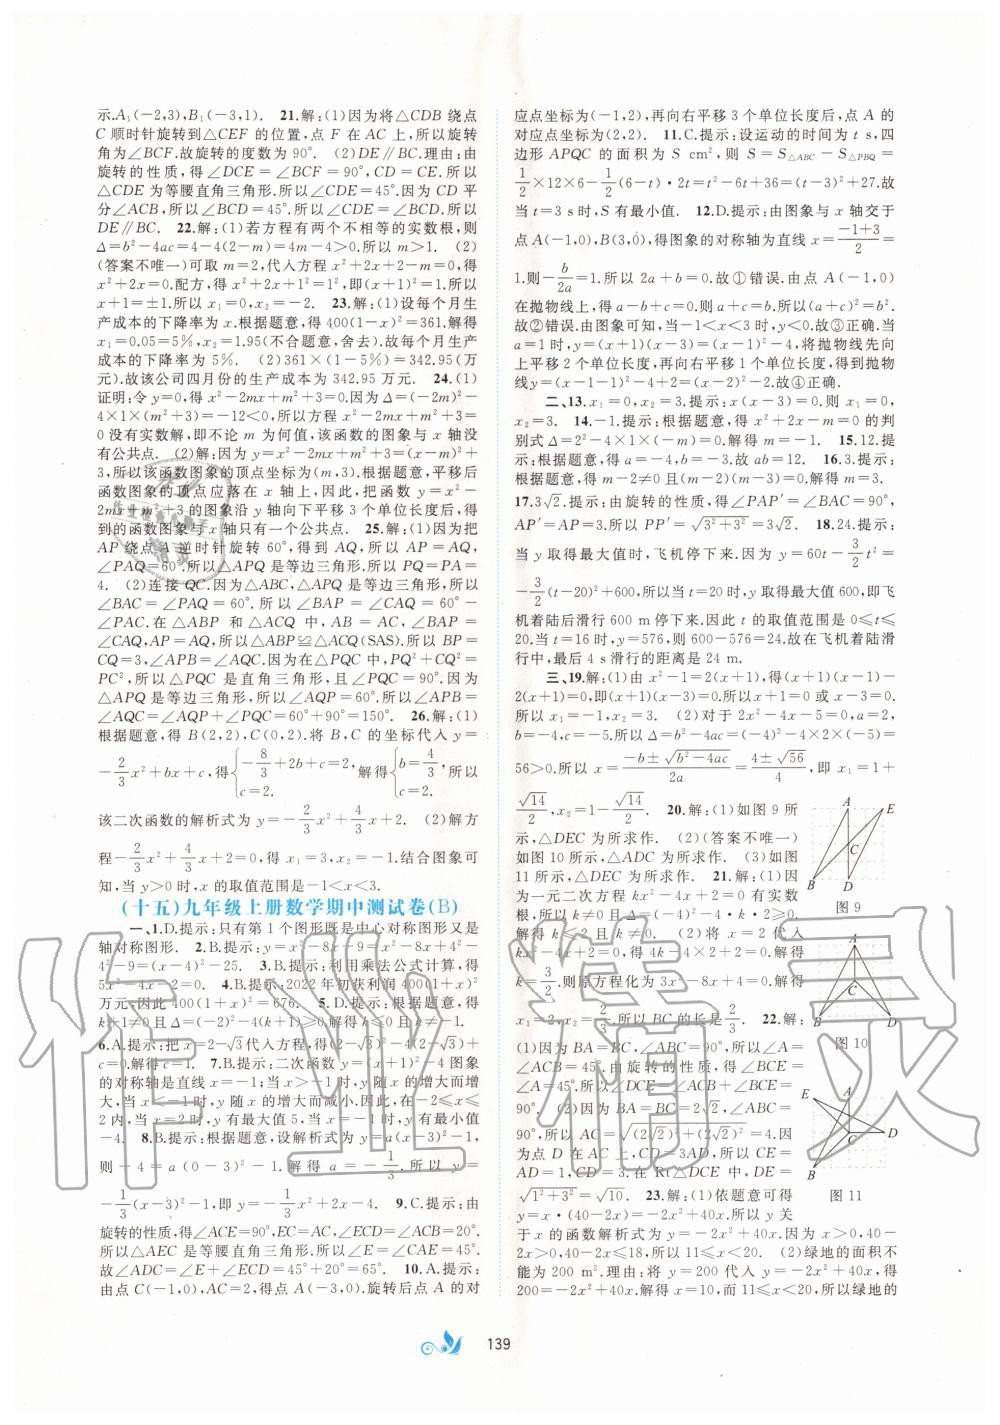 示.A₁(－2,3),B₁(－3,1).　21.解:(1)因为将△CDB 绕点
C 顺时针旋转到△CEF 的位置,点 F 在 AC 上,所以旋转
角为∠BCF.故旋转的度数为 90°.　(2)DE∥BC.理由:由
旋转的性质,得∠DCE＝∠BCF＝90°,CD＝CE.所以
△CDE 为等腰直角三角形.所以∠CDE＝45°.因为 CD 平
分∠ACB,所以∠BCD＝45°.所以∠CDE＝∠BCD.所以
DE∥BC.　22.解:(1)若方程有两个不相等的实数根,则
Δ＝b²－4ac＝4－4(2－m)＝4m－4＞0.所以 m＞1.　(2)
(答案不唯一)可取 m＝2,代入方程 x²＋2x＋2－m＝0,得
x²＋2x＝0.配方,得 x²＋2x＋1²＝1²,即(x＋1)²＝1.所以
x＋1＝±1.所以 x₁＝0,x₂＝－2.　23.解:(1)设每个月生
产成本的下降率为 x.根据题意,得 400(1－x)²＝361.解得
x₁＝0.05＝5％,x₂＝1.95(不合题意,舍去).故每个月生产
成本的下降率为 5％.　(2)361×(1－5％)＝342.95(万
元).故该公司四月份的生产成本为 342.95 万元.　24.(1)
证明:令 y＝0,得 x²－2mx＋m²＋3＝0.因为Δ＝(－2m)²－
4×1×(m²＋3)＝－12＜0,所以方程 x²－2mx＋m²＋3＝
0 没有实数解,即不论 m 为何值,该函数的图象与 x 轴没
有公共点.　(2)解:因为 y＝x²－2mx＋m²＋3＝(x－m)²＋
3,所以该函数图象的顶点坐标为(m,3).根据题意,平移后
函数图象的顶点应落在 x 轴上,因此,把函数 y＝x²－
2mx＋m²＋3 的图象沿 y 轴向下平移 3 个单位长度后,得
到的函数图象与 x 轴只有一个公共点.　25.解:(1)因为把
AP 绕点 A 逆时针旋转 60°,得到 AQ,所以 AP＝AQ,
∠PAQ＝60°.所以△APQ 是等边三角形.所以 PQ＝PA＝
4.　(2)连接 QC.因为△ABC,△APQ 是等边三角形,所以
∠BAC＝∠PAQ＝60°.所以∠BAP＝∠CAQ＝60°－
∠PAC.在△ABP 和△ACQ 中,AB＝AC,∠BAP＝
∠CAQ,AP＝AQ,所以△ABP≌△ACQ(SAS).所以 BP＝
CQ＝3,∠APB＝∠AQC.因为在△PQC 中,PQ²＋CQ²＝
PC²,所以△PQC 是直角三角形,且∠PQC＝90°.因为
△APQ 是等边三角形,所以∠AQP＝60°.所以∠APB＝
∠AQC＝∠AQP＋∠PQC＝60°＋90°＝150°.　26.解:(1)
根据题意,得 B(2,2),C(0,2).将 B,C 的坐标代入 y＝
－2/3x²＋bx＋c,得{－8/3＋2b＋c＝2, c＝2. 解得{b＝4/3, c＝2. 所以
该二次函数的解析式为 y＝－2/3x²＋4/3x＋2.　(2)解方
程－2/3x²＋4/3x＋2＝0,得 x₁＝3,x₂＝－1.结合图象可
知,当 y＞0 时,x 的取值范围是－1＜x＜3.
(十五)九年级上册数学期中测试卷(B)
一、1.D.提示:只有第 1 个图形既是中心对称图形又是
轴对称图形.　2.B.提示:y＝x²－8x－9＝x²－8x＋4²－
4²－9＝(x－4)²－25.　3.B.提示:利用乘法公式计算,得
5x²－4x－2＝0.　4.B.提示:2022 年初获利润 400(1＋x)²
万元,因此 400(1＋x)²＝676.　5.D.提示:根据题意,得
k＋1≠0 且Δ＝(－2)²－4(k＋1)≥0.解得 k≤0 且 k≠－1.
6.A.提示:把 x＝2－√3代入方程,得(2－√3)²－4(2－√3)
＋c＝0.解得 c＝1.　7.B.提示:二次函数 y＝(x＋1)²－4 图象
的对称轴是直线 x＝－1,当 x＞－1 时,y 随 x 的增大而增
大,当 x＜－1 时,y 随 x 的增大而减小.因此,在－2≤x≤
2 内,当 x＝2 时,y 有最大值 5,当 x＝－1 时,y 有最小值
－4.　8.B.提示:根据题意,设解析式为 y＝a(x－3)²－1,
则－4＝a(0－3)²－1.解得 a＝－1/3.所以 y＝
－1/3(x－3)²－1,即 y＝－1/3x²＋2x－4.　9.C.提示:由
旋转的性质,得∠ACE＝90°,EC＝AC,∠ECD＝∠ACB＝20°.
所以△AEC 是等腰直角三角形.所以∠E＝∠CAE＝45°.
故∠ADC＝∠E＋∠ECD＝45°＋20°＝65°.　10.A.提示:
由点 C(－1,0),AC＝2,得点 A(－3,0).旋转后点 A 的对
应点坐标为(－1,2),再向右平移 3 个单位长度后,点 A 的
对应点坐标为(2,2).　11.C.提示:设运动的时间为 t s,四
边形 APQC 的面积为 S cm²,则 S＝S△ABC－S△PBQ＝
1/2×12×6－1/2(6－t)·2t＝t²－6t＋36＝(t－3)²＋27.故
当 t＝3 s时,S 有最小值.　12.D.提示:由图象与 x 轴交于
点 A(－1,0),B(3,0),得图象的对称轴为直线 x＝(－1＋3)/2＝
1.则－b/2a＝1.所以 2a＋b＝0.故①错误.由点 A(－1,0)
在抛物线上,得 a－b＋c＝0.则 a＋c＝b.所以(a＋c)²＝b².
故②错误.由图象可知,当－1＜x＜3 时,y＜0.故③正确.当
a＝1 时,y＝(x＋1)(x－3)＝(x－1)²－4,将抛物线先向
上平移 2 个单位长度,再向右平移 1 个单位长度,得到抛物
线y＝(x－1－1)²－4＋2＝(x－2)²－2.故④正确.
二、13.x₁＝0,x₂＝3.提示:x(x－3)＝0.则 x₁＝0,
x₂＝3.　14.－1.提示:根据题意,得 x²＋2x－m＝0 的判
别式Δ＝2²－4×1×(－m)＝0.解得 m＝－1.　15.12.提
示:根据题意,得 a＝－4,b＝－3.故 ab＝12.　16.3.提示:
根据题意,得 m－2≠0 且|m－2|＋m－2＝2.解得 m＝3.
17.3√2.提示:由旋转的性质,得∠PAP′＝∠BAC＝90°,
AP′＝AP＝3.所以 PP′＝√(3²＋3²)＝3√2.　18.24.提示:
当 y 取得最大值时,飞机停下来.因为 y＝60t－3/2t²＝
－3/2(t－20)²＋600,所以当 t＝20 时,y 取得最大值 600,即飞
机着陆后滑行 600 m 停下来.因此 t 的取值范围是 0≤t≤
20.当 t＝16 时,y＝576,则 600－576＝24.故在飞机着陆滑
行中,最后 4 s滑行的距离是 24 m.
三、19.解:(1)由 x²－1＝2(x＋1),得(x＋1)(x－1)－
2(x＋1)＝0,即(x＋1)(x－3)＝0.所以 x＋1＝0 或 x－3＝0.
所以 x₁＝－1,x₂＝3.　(2)对于 2x²－4x－5＝0,a＝2,
b＝－4,c＝－5.所以Δ＝b²－4ac＝(－4)²－4×2×(－5)＝
56＞0.所以 x＝(－b±√(b²－4ac))/2a＝(4±√56)/4,即 x₁＝1＋
√14/2,x₂＝1－√14/2.　20.解:(1)如图 9 所
示,△DEC 为所求作.　(2)(答案不唯一)
如图 10 所示,△ADC 为所求作.　(3)如图
11 所示,△DEC 为所求作.　21.解:(1)因
为一元二次方程 kx²－4x＋2＝0
有实数根,所以 k≠0 且Δ＝16－8k≥0.
解得 k≤2 且 k≠0.　(2)将 x＝2 代入
kx²－4x＋2＝0,得 4k－4×2＋2＝0.解得
k＝3/2.则原方程化为 3x²－8x＋4＝0.解得
x₁＝2,x₂＝2/3.所以 BC 的长是2/3.　22.解:
(1)因为 BA＝BC,∠ABC＝90°,所以∠A＝
∠ACB＝45°.由旋转的性质,得∠BCE＝
∠A＝45°.所以∠DCE＝∠ACB＋∠BCE＝
90°.　(2)因为 BA＝BC＝2√2,∠ABC＝
90°,所以 AC＝√((2√2)²＋(2√2)²)＝4.因
为点 D 在 AC 上,CD＝3AD,所以 CE＝
AD＝1,CD＝3.在 Rt△DCE 中,DE＝
√(1²＋3²)＝√10.　23.解:(1)依题意可得
y＝x·(40－2x)＝－2x²＋40x.所以 y 关
于 x 的函数解析式为 y＝－2x²＋40x.因为 x＞0,40－
2x＞0,40－2x≤18,所以 11≤x＜20.　(2)绿地的面积不
能为 200 m².理由:将 y＝200 代入 y＝－2x²＋40x,得
200＝－2x²＋40x.解得 x＝10,而 11≤x＜20,所以绿地的
A
E
C
B
D
图 9
A
C
B
D
图 10
E
A
C
D
B
图 11
139
作业精灵